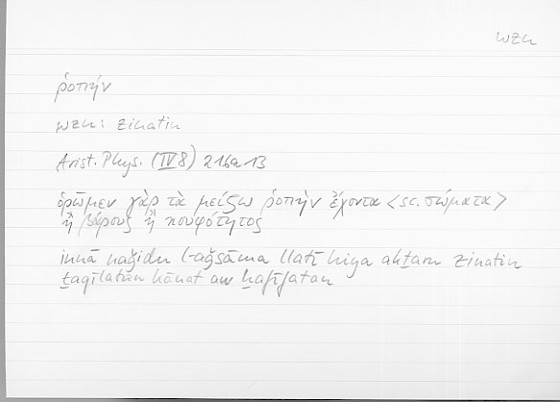 wzn
ῥοπήν
wzn: zinatin
Arist. Phys. (IV 8) 216a13
ὁρῶμεν γὰρ τὰ μείζω ῥοπὴν ἔχοντα <sc. σώματα>
ἢ βάρους ἢ κουφότητος
innā naǧidu l-aǧsāma llatī hiya akṯaru zinatin
ṯaqīlatan kānat aw ḫafīfatan